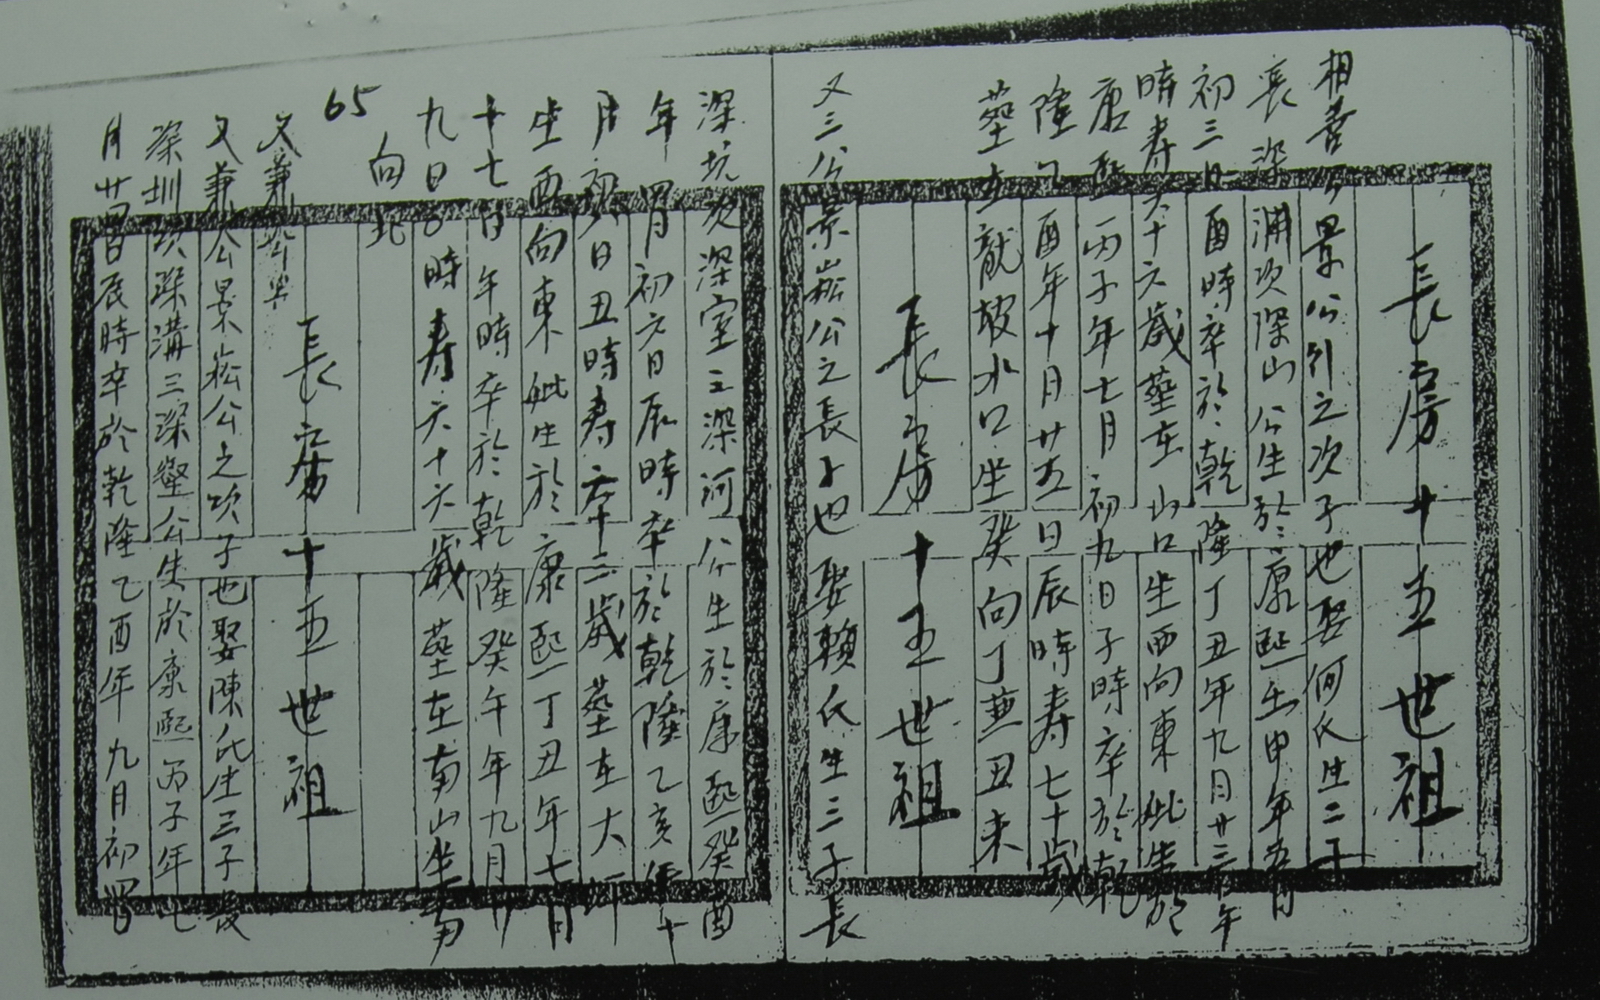 長房十五世祖
相善公景公引之次子也娶何氏生二子
長深浦次深山公生於康熙甲年五月
初三日酉時卒於乾隆丁丑年九月廿三日午
時寿六十六歲塟在山口坐西向東妣生於
康熙丙子年七月初九日子時卒於乾
隆乙酉年十月廿五日辰時寿七十歲
塟在龍坡水口坐癸向丁兼丑未
長房十五世祖
又三公景崧公之長子也娶賴氏生三子長
深坑次深室三深河公生於康熙癸酉
年四月初六日辰時卒於乾隆乙亥年十
月初六日丑時寿六十三歲塟在大坜
坐酉向東妣生於康熙丁丑年七月
十七日年時卒於乾隆癸午年九月廿
九日子時寿六十六歲塟在南山坐南
向北
65
長房十五世祖
又兼公景崧公之次子也娶陳氏生三子長
深圳次深溝三深壂公生於康熙丙子年七
月廿四日辰時卒於乾隆乙酉年九月初四